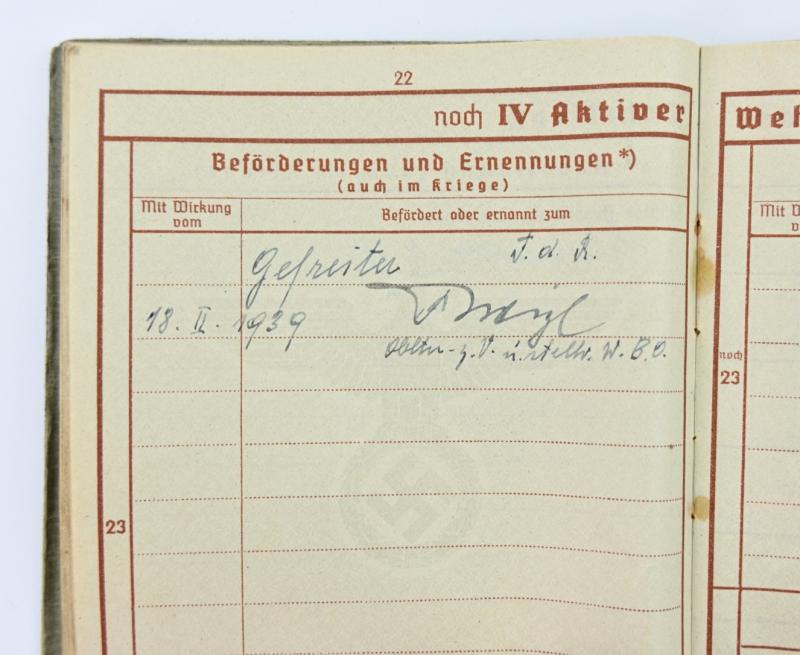 22
noch IV Aktiver
Beförderungen und Ernennungen*)
(auch im Kriege)
Mit Wirkung vom
Befördert oder ernannt zum
Gefreiter F. d. R.
18. II. 1939
Obltn. z. V. u. stellv. W. B. O.
23
Weh
Mit W
v
noch
23